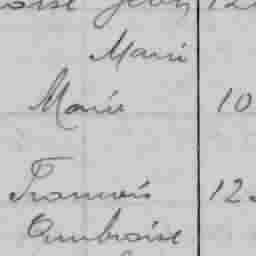 Jean 12
Marie
Marie 10
Francois 12
Ambroise